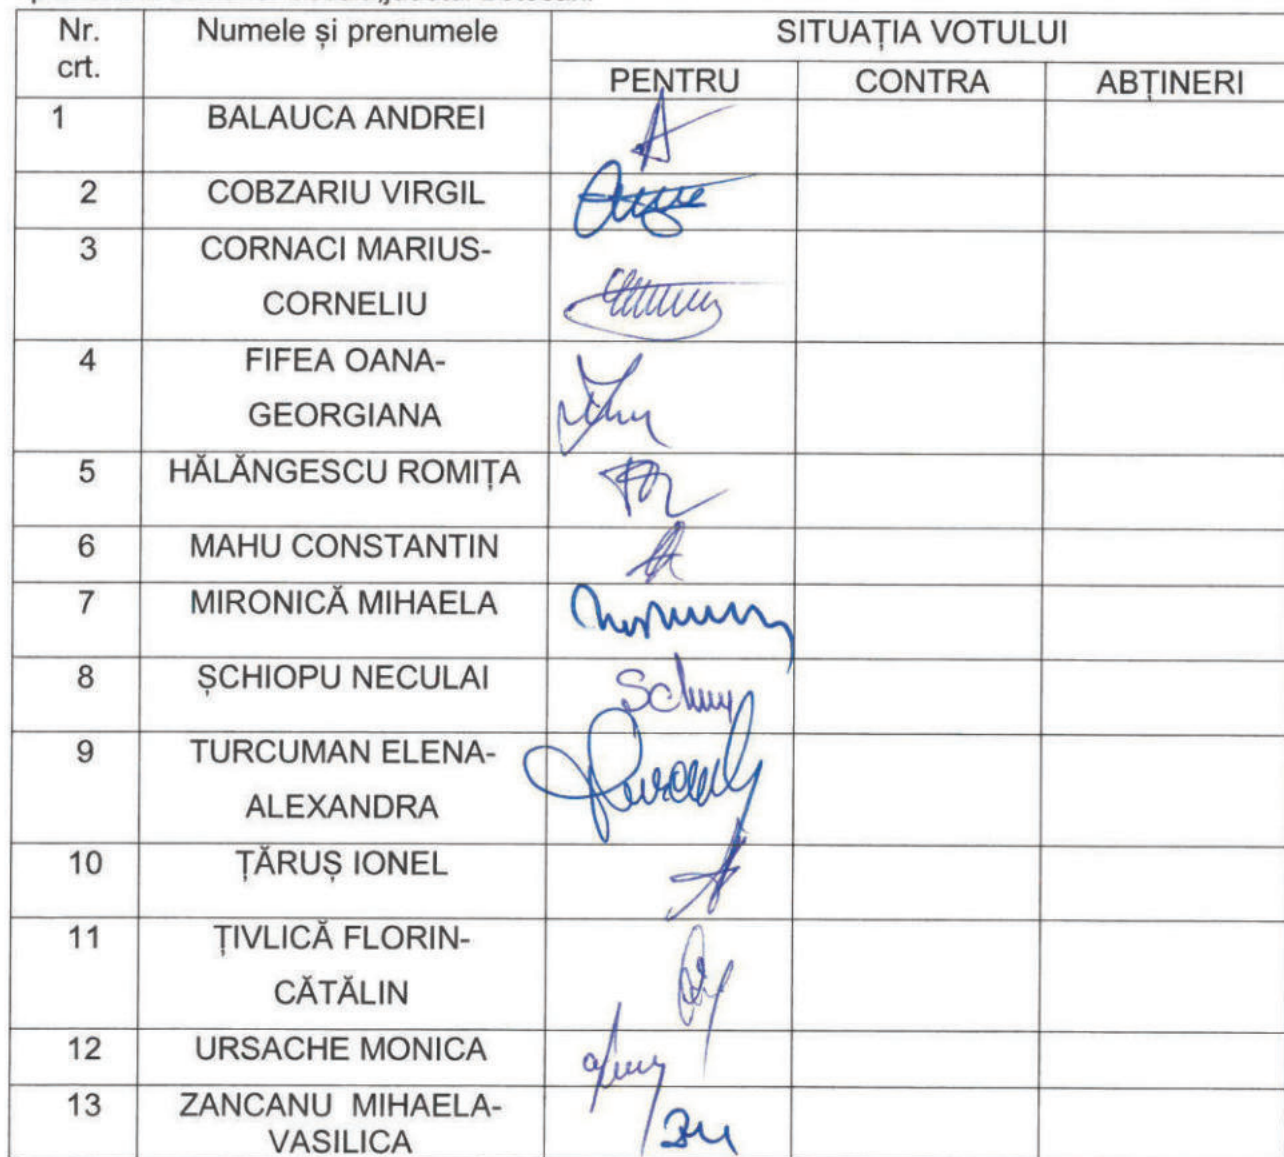 Nr. crt. Numele și prenumele SITUAȚIA VOTULUI
PENTRU CONTRA ABȚINERI
1 BALAUCA ANDREI
2 COBZARIU VIRGIL
3 CORNACI MARIUS-
CORNELIU
4 FIFEA OANA-
GEORGIANA
5 HĂLĂNGESCU ROMIȚA
6 MAHU CONSTANTIN
7 MIRONICĂ MIHAELA
8 ȘCHIOPU NECULAI
9 TURCUMAN ELENA-
ALEXANDRA
10 ȚĂRUȘ IONEL
11 ȚIVLICĂ FLORIN-
CĂTĂLIN
12 URSACHE MONICA
13 ZANCANU MIHAELA-
VASILICA